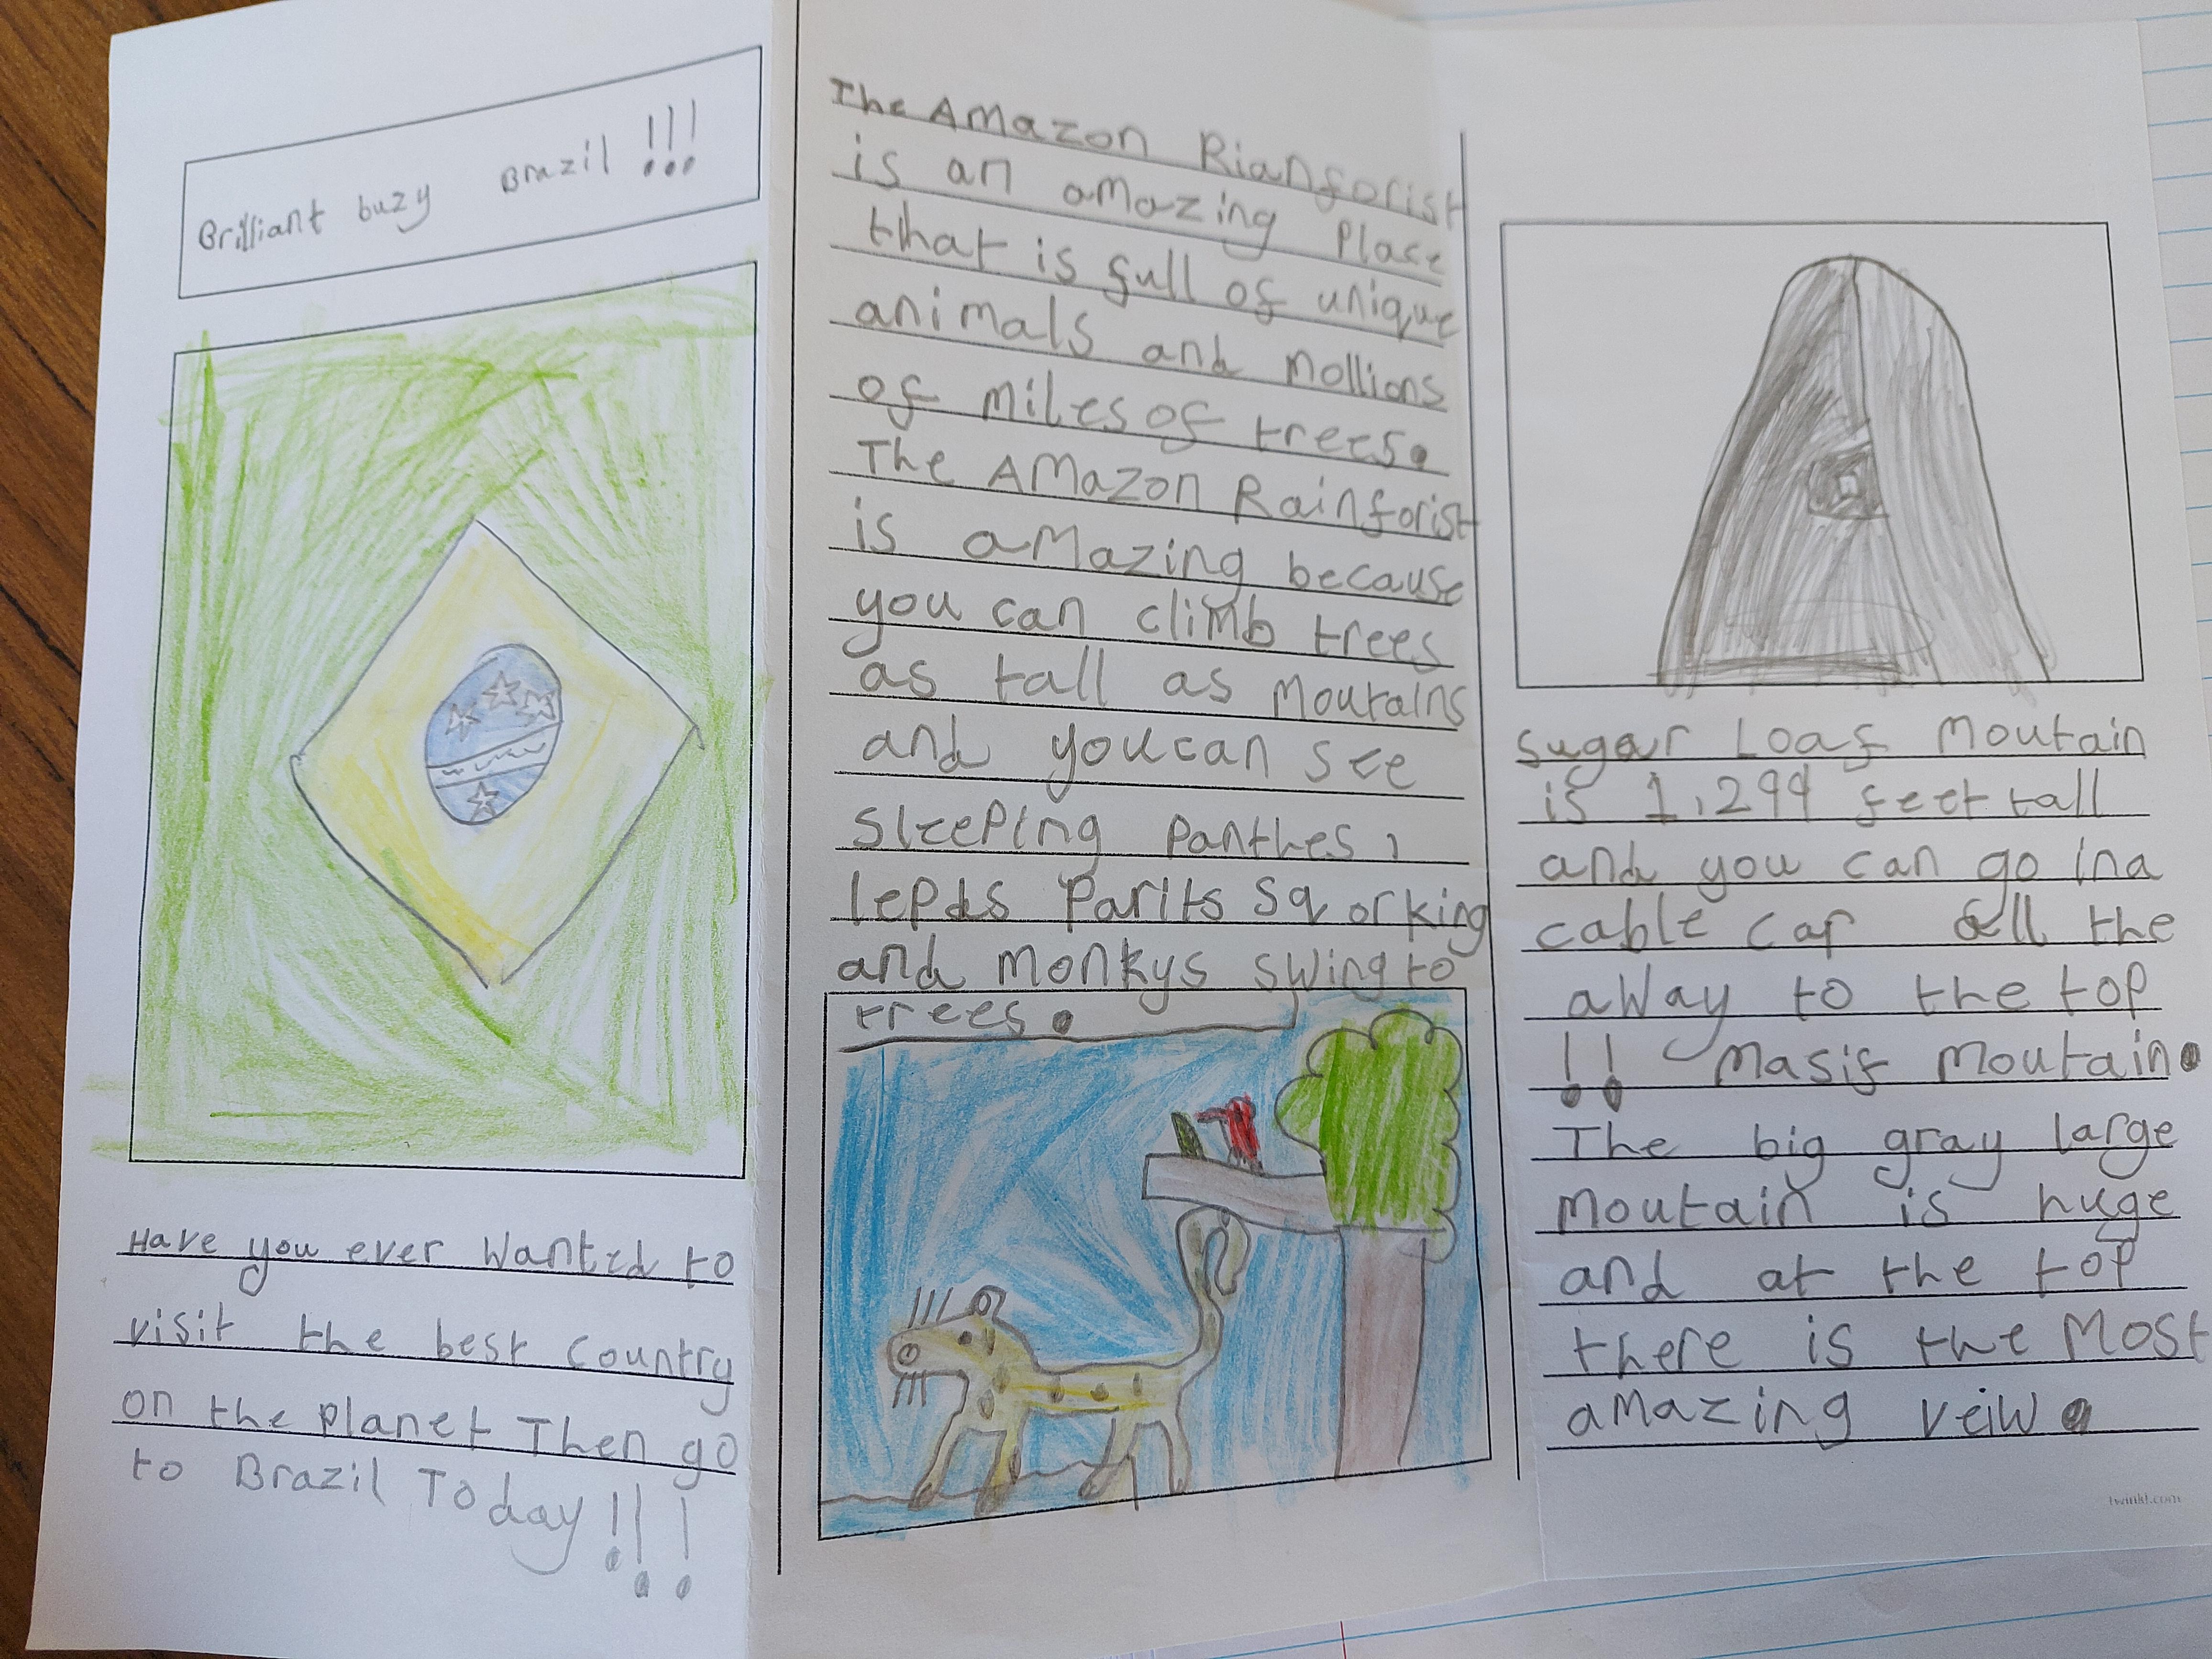 Brilliant buzy Brazil !!!
Have you ever wanted to
visit the best country
on the planet Then go
to Brazil Today!!!
The Amazon Rianforist
is an amazing place
that is full of unique
animals and mollions
of miles of trees.
The Amazon Rainforist
is amazing because
you can climb trees
as tall as moutains
and you can see
sleeping panthes,
lepds parits sqorking
and monkys swing to
trees.
sugar Loaf moutain
is 1,299 feet tall
and you can go in a
cable car all the
away to the top
!! masif moutain.
The big gray large
moutain is huge
and at the top
there is the most
amazing veiw.
twinkl.com